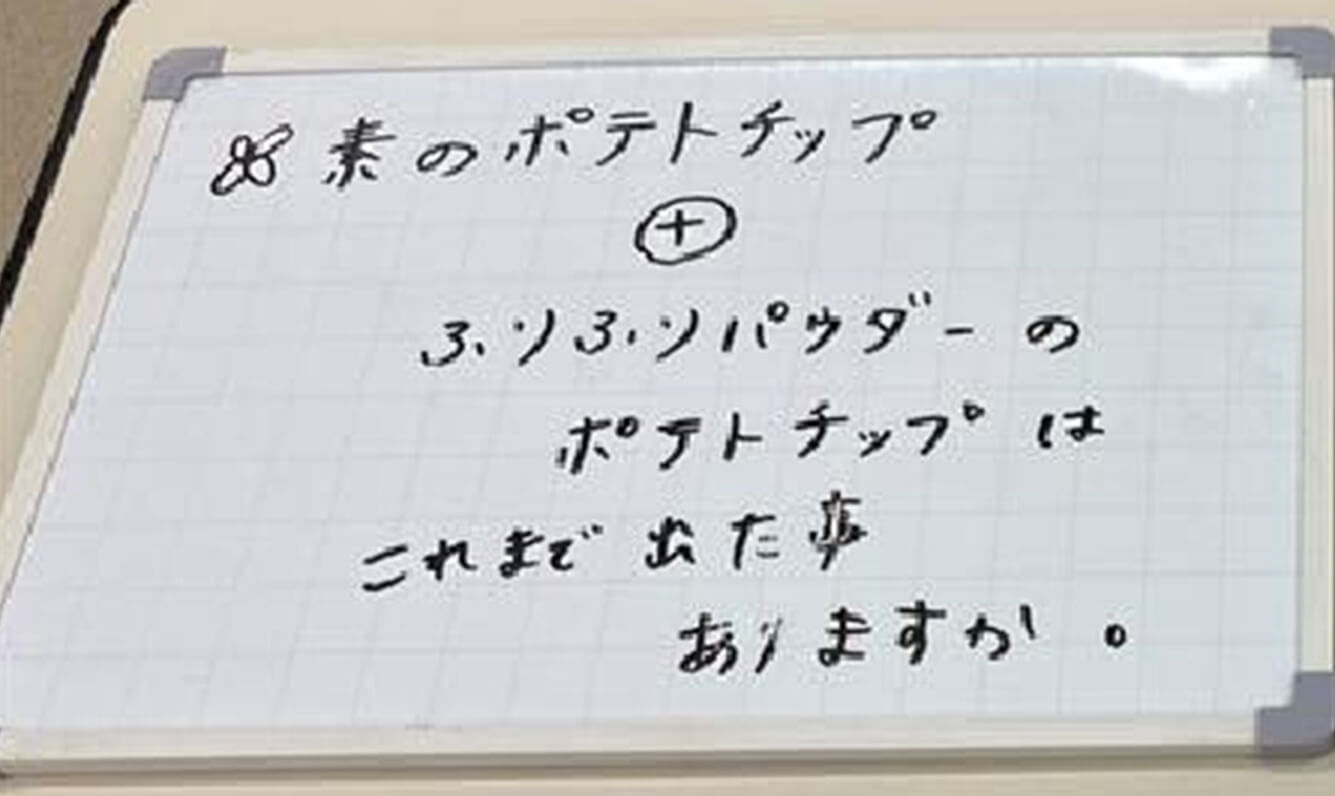 素のポテトチップ
⊕
ふりふりパウダーの
ポテトチップは
これまで出た事
ありますか。